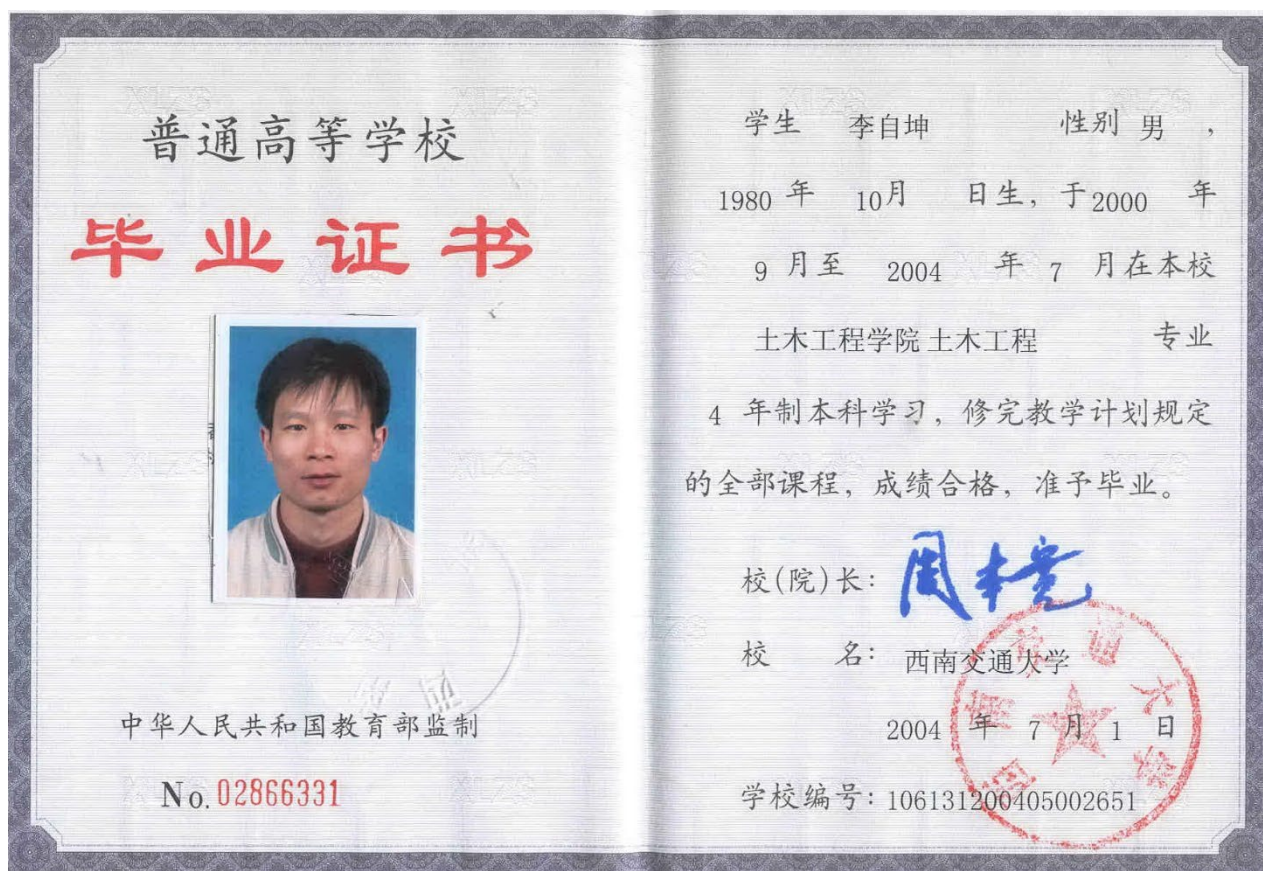 普通高等学校
毕业证书
中华人民共和国教育部监制
No. 02866331
学生 李自坤 性别 男 ,
1980 年 10月 日生, 于2000 年
9 月至 2004 年 7 月在本校
土木工程学院 土木工程 专业
4 年制本科学习, 修完教学计划规定
的全部课程, 成绩合格, 准予毕业。
校(院)长: 周本宽
校 名: 西南交通大学
2004 年 7 月 1 日
学校编号: 106131200405002651
西南交通大学